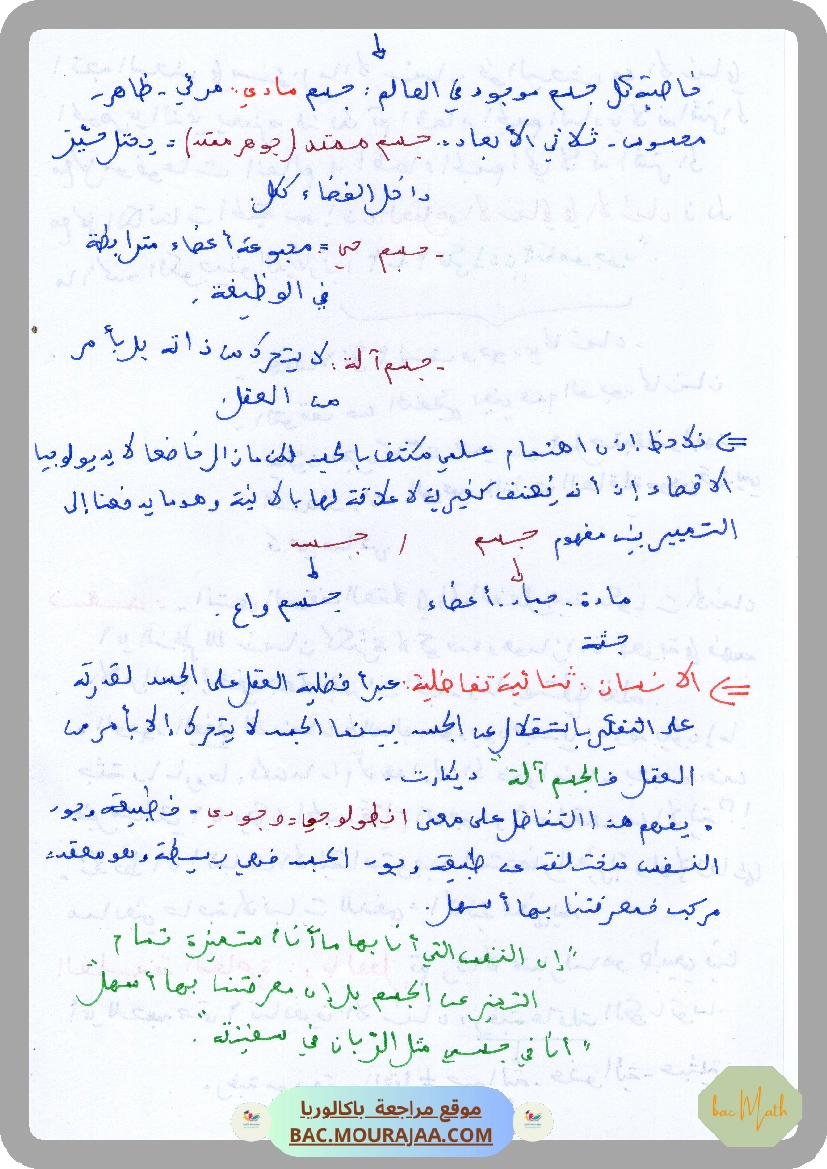 ↓
خاصية كل جسم موجود في العالم : جسم مادي : مرئي - ظاهر -
محسوس - ثلاثي الأبعاد - جسم ممتد (جوهر ممتد) = يحتل حيّز
داخل الفضاء ككل
- جسم حي = مجموعة أعضاء مترابطة
في الوظيفة .
- جسم آلة : لا يتحرك من ذاته بل بأمر
من العقل
<= نلاحظ إذن اهتمام علمي مكثف بالجسد لكن مازال خاضعا لايديولوجيا
الاقصاء إذ أنه يُصنف كغيرية لا علاقة لها بالانية وهو ما يدفعنا إلى
التمييز بين مفهوم جسم / جسد
↓ ↓
مادة - أعضاء جسم واع .
جثة
<= الانسان : ثنائية تفاضلية : عبر أفضلية العقل على الجسد لقدرته
على التفكير باستقلال عن الجسد بينما الجسد لا يتحرك إلا بأمر من
العقل فالجسم آلة " ديكارت .
. يفهم هذا التفاضل على معنى انطولوجي = وجودي - فطبيعة وجود
النفس مختلفة عن طبيعة وجود الجسد فهي بسيطة وهو معقد
مركب فمعرفتنا بها أسهل .
"إن النفس التي أنا بها ما أنا متميزة تمام
التميز عن الجسم بل إن معرفتنا بها أسهل"
"أنا في جسمي مثل الرّبان في سفينته".
موقع مراجعة باكالوريا
BAC.MOURAJAA.COM
bac Math